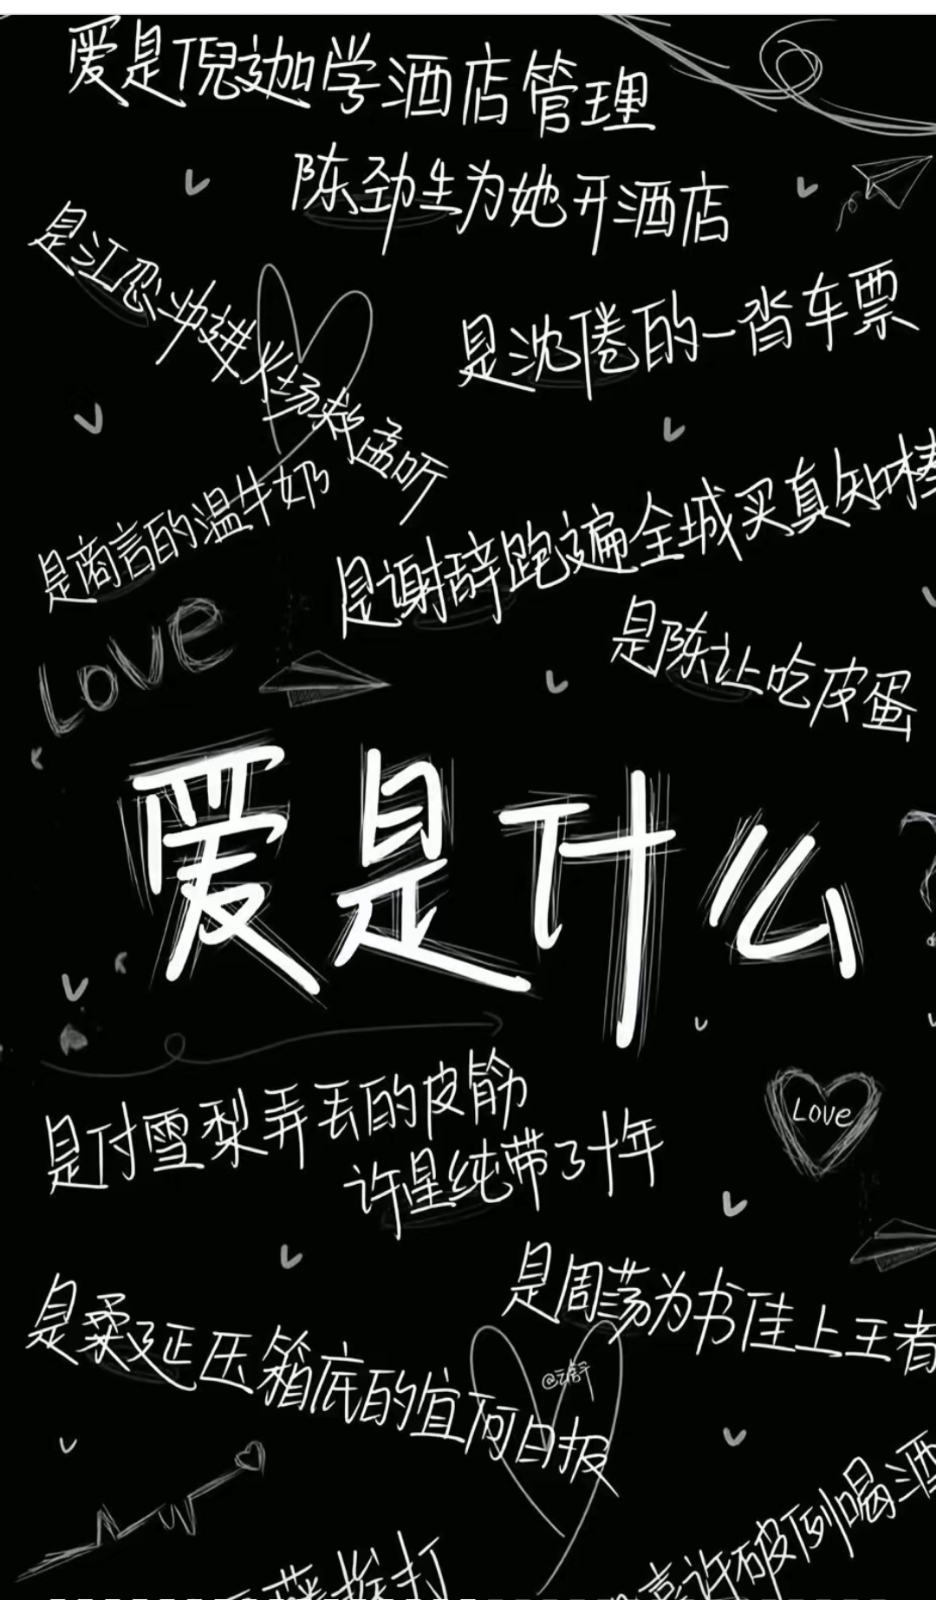 爱是倪迦学酒店管理
陈劲生为她开酒店
是江忍冲进火场救孟听
是沈倦的一沓车票
是商言的温牛奶
是谢辞跑遍全城买真知棒
是陈让吃皮蛋
LOVE
爱是什么
是付雪梨弄丢的皮筋
许星纯带了十年
Love
是周荡为书佳上王者
是柔延压箱底的宜阿日报
挨打
嘉许破例喝酒